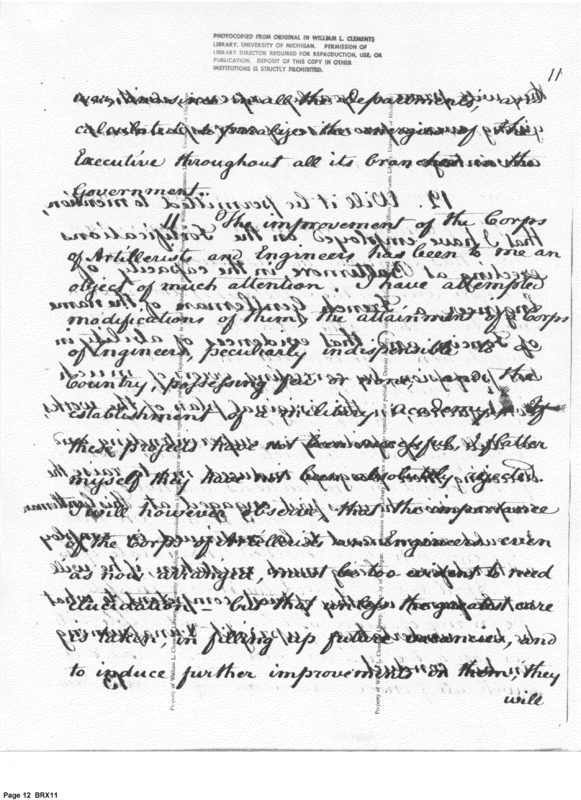 PHOTOCOPIED FROM ORIGINAL IN WILLIAM L. CLEMENTS
LIBRARY, UNIVERSITY OF MICHIGAN. PERMISSION OF
LIBRARY DIRECTOR REQUIRED FOR REPRODUCTION, USE, OR
PUBLICATION. DEPOSIT OF THIS COPY IN OTHER
INSTITUTIONS IS STRICTLY PROHIBITED.
11
all the Departments,
calculated to paralize the energies of the
Executive throughout all its branches in the
Government.
11 The improvement of the Corps
of Artillerists and Engineers has been to me an
object of much attention I have attempted
modifications of them, the attainment of a Corps
of Engineers, peculiarly indispensible to a
Country, possessing few or none, & the
establishment of a military academy. If
these projects have not been successful, I flatter
myself they have not been absolutely rejected.
I will however observe that the importance
of the Corps of Artillerists and Engineers even
as now arranged, must be too evident to need
elucidation – but that unless the greatest care
is taken, in filling up future vacancies, and
to induce further improvements in them, they
will
Page 12 BRX11